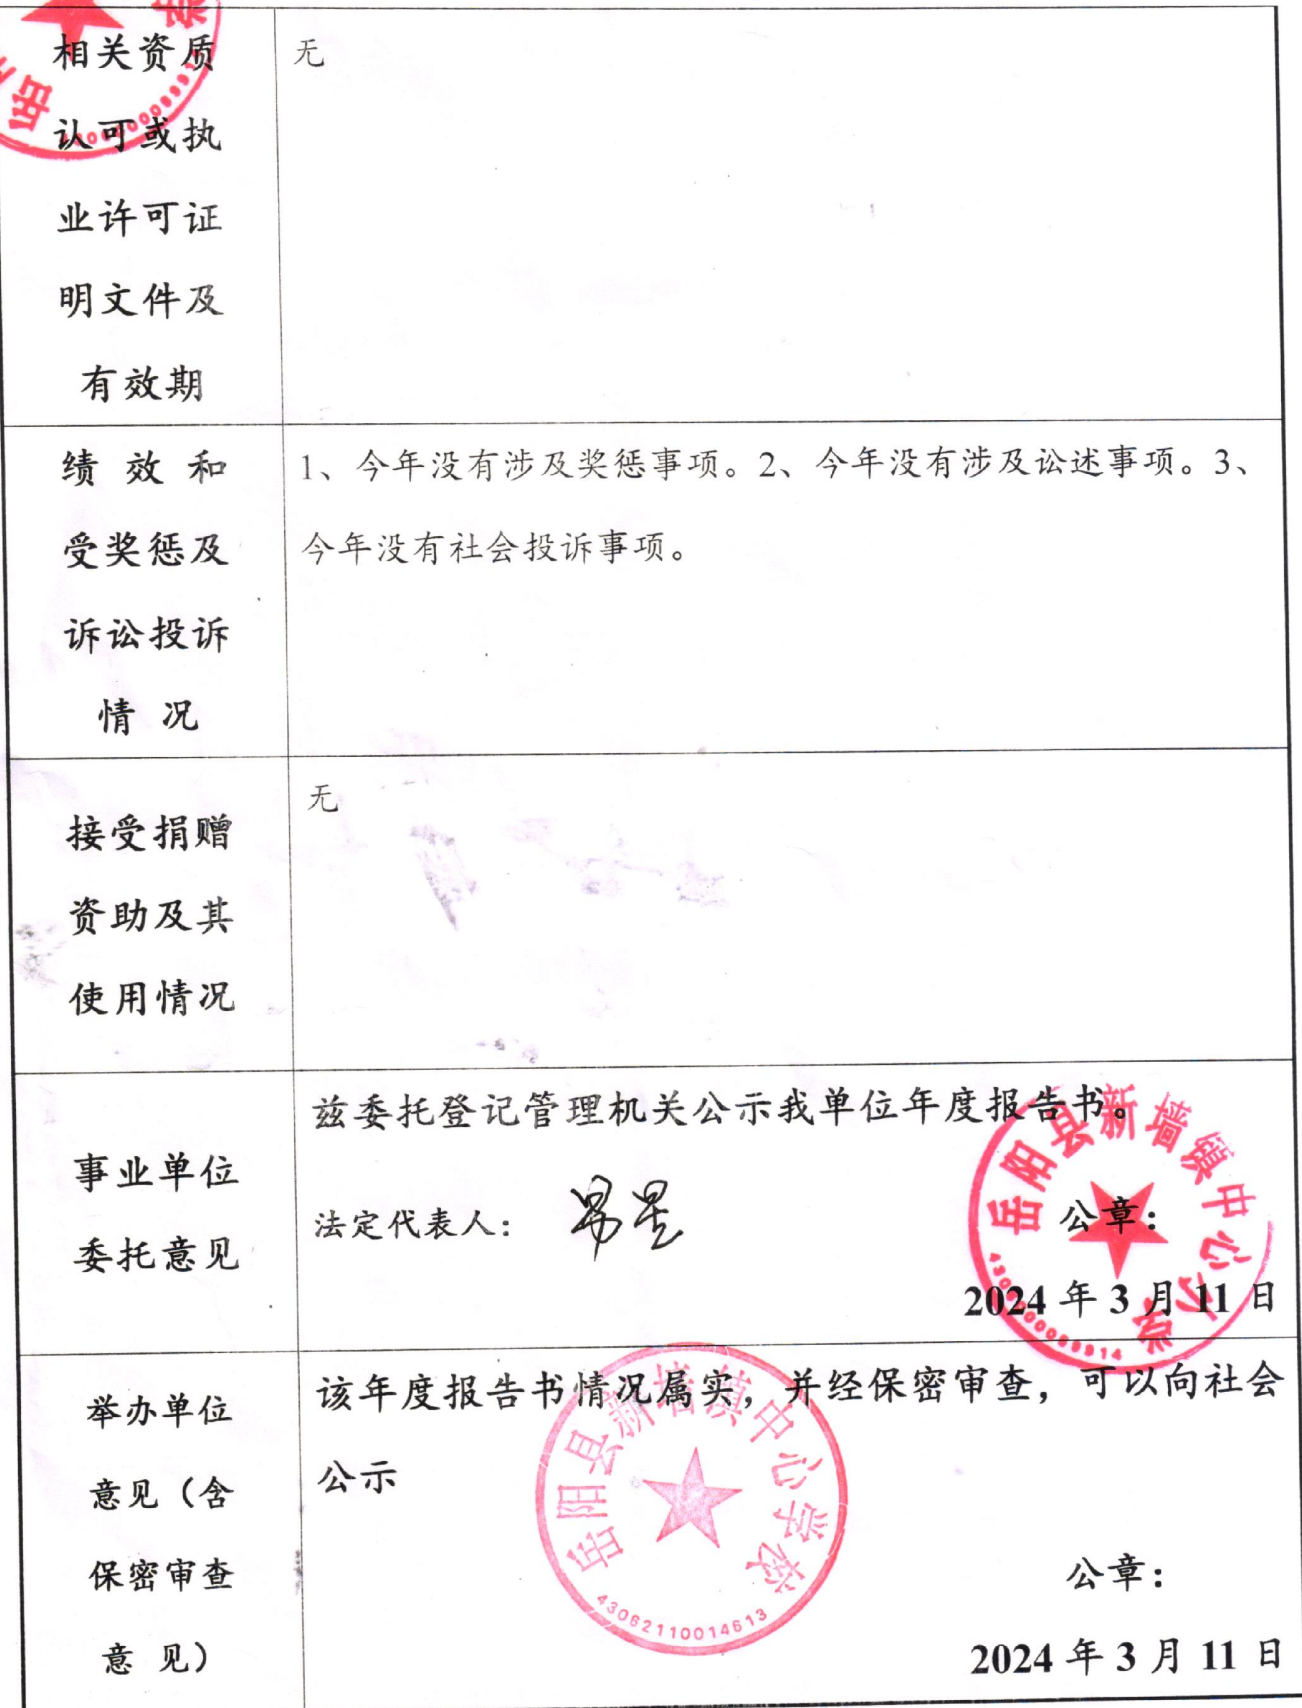 相关资质
认可或执
业许可证
明文件及
有效期
无
绩 效 和
受奖惩及
诉讼投诉
情 况
1、今年没有涉及奖惩事项。2、今年没有涉及讼述事项。3、
今年没有社会投诉事项。
接受捐赠
资助及其
使用情况
无
事业单位
委托意见
兹委托登记管理机关公示我单位年度报告书。
法定代表人：
公章：
2024 年 3 月 11 日
岳阳县新墙镇中心小学
举办单位
意见（含
保密审查
意 见）
该年度报告书情况属实，并经保密审查，可以向社会
公示
公章：
2024 年 3 月 11 日
岳阳县新墙镇中心学校
43062110014613